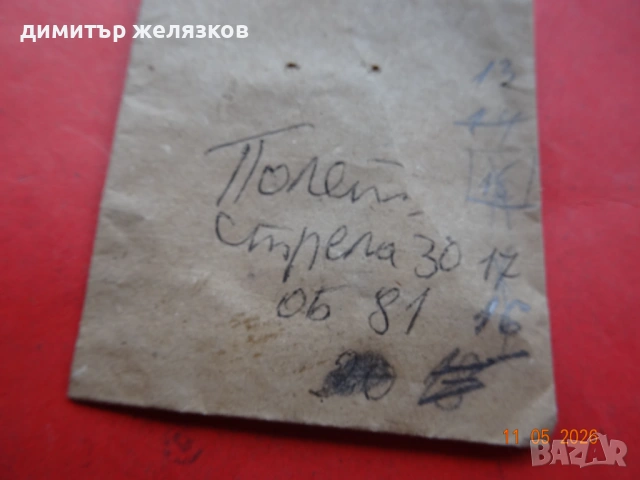 димитър желязков
13
11
Полет,
15
стрела 30 17
ОБ 81 16
18
11.05.2026
BAZAR